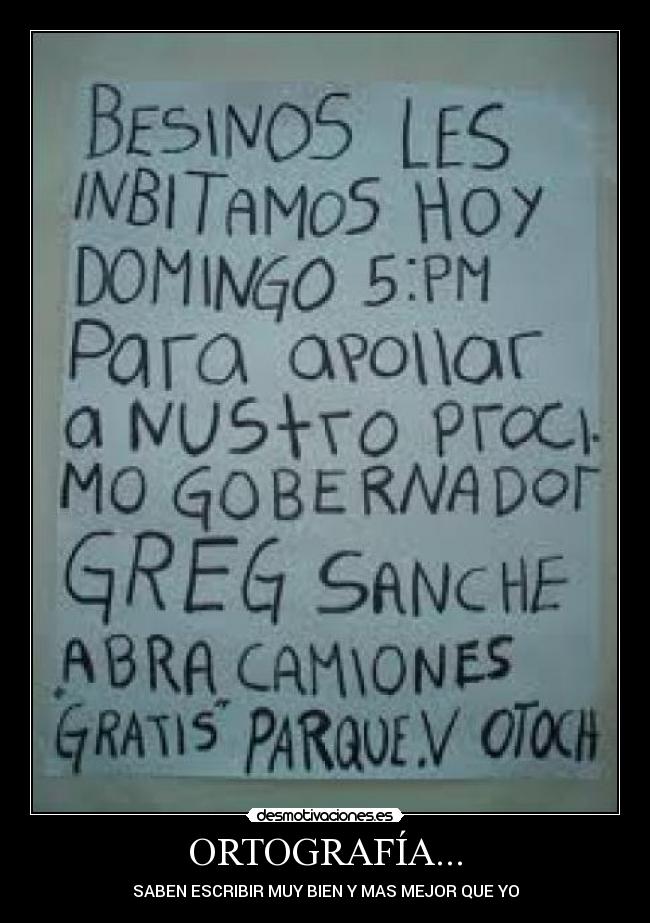 BESINOS LES
INBITAMOS HOY
DOMINGO 5:PM
Para apollar
a NUStro proci-
MO GOBERNADOr
GREG SANCHE
ABRA CAMIONES
"GRATIS" PARQUE.V OTOCH
desmotivaciones.es
ORTOGRAFÍA...
SABEN ESCRIBIR MUY BIEN Y MAS MEJOR QUE YO